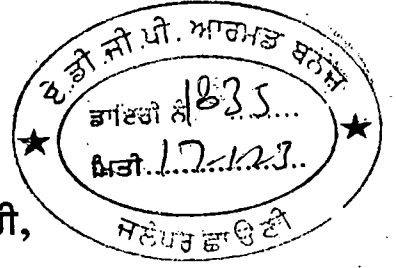 ਏ.ਡੀ.ਜੀ.ਪੀ. ਆਰਮਡ ਬਨੇਜ਼
ਡਾਇਰੀ ਨੰ 1835
ਮਿਤੀ 17-1-23
ਜਲੰਧਰ ਛਾਉਣੀ